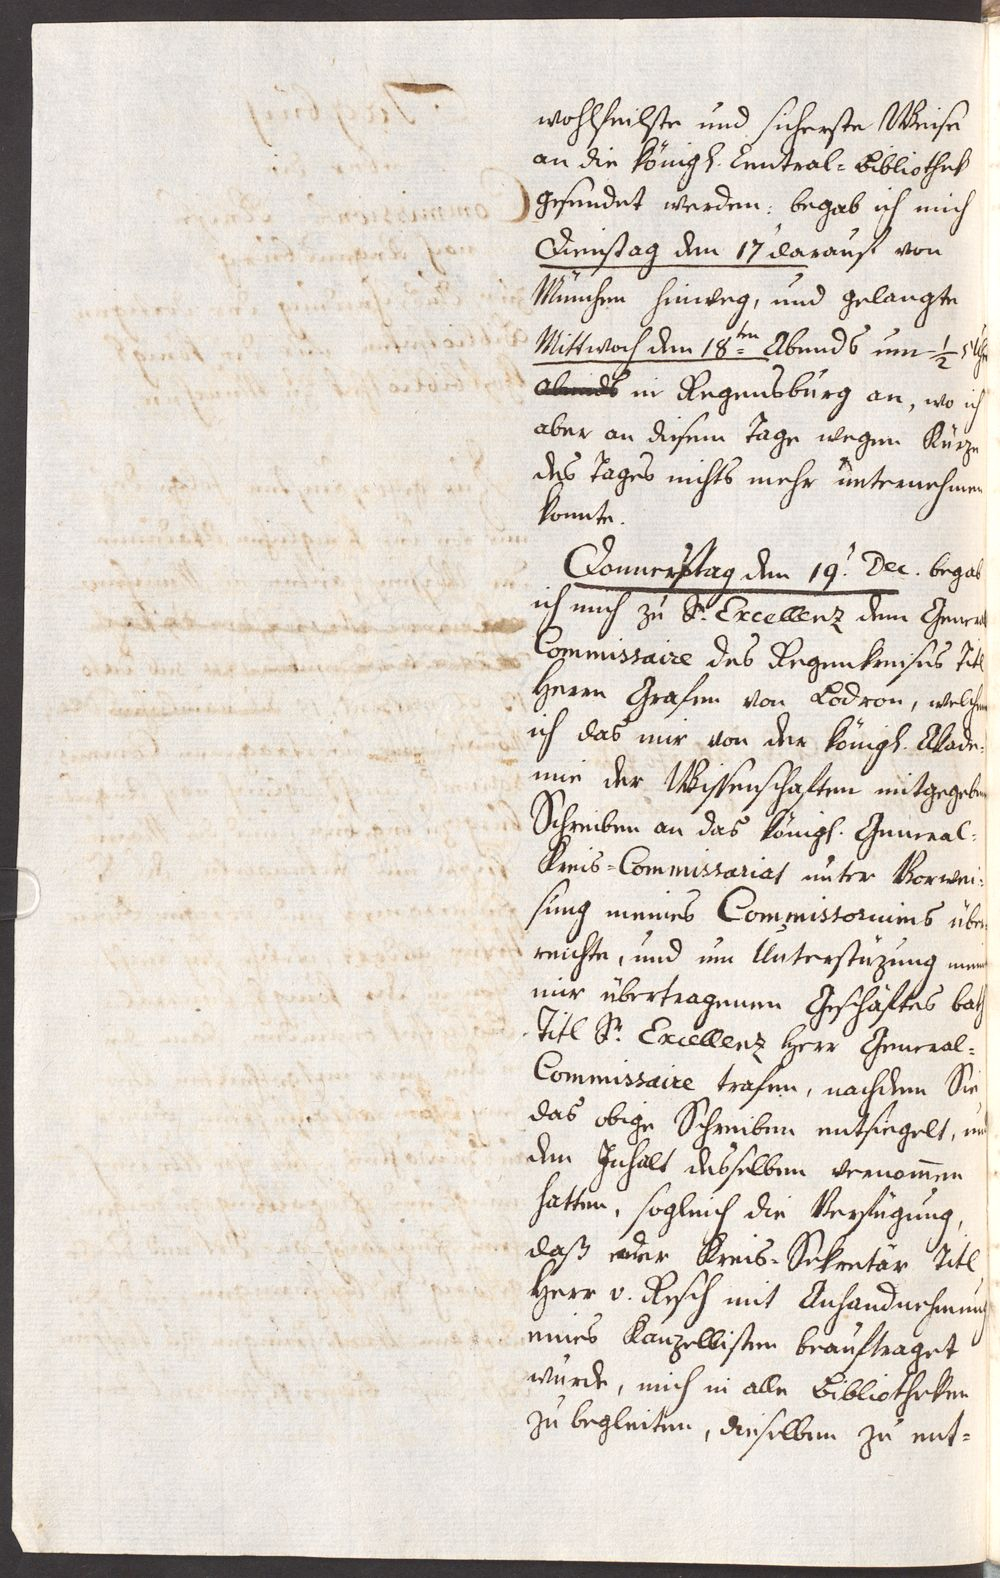 wohlfeilste und sicherste Weise
an die königl. Central-Bibliothek
gesendet werden: begab ich mich
Dienstag den 17' darauf von
München hinweg, und gelangte
Mittwoch den 18ten Abends um ½ 5 Uhr
abends in Regensburg an, wo ich
aber an diesem Tage wegen Kürze
des Tages nichts mehr unternehmen
konnte.
Donnerstag den 19' Dec. begab
ich mich zu Sr. Excellenz dem General
Commissaire des Regenkreises Titl
Herrn Grafen von Lodron, welchem
ich das mir von der königl. Akade-
mie der Wissenschaften mitgegeben
Schreiben an das königl. General-
Kreis-Commissariat unter Vorwei-
sung meines Commissoriums über-
reichte, und um Unterstüzung
mir übertragenen Geschäftes bath
Titl Sr. Excellenz Herr General-
Commissaire trafen, nachdem Sie
das obige Schreiben entsiegelt, und
den Inhalt desselben vernom̄en
hatten, sogleich die Verfügung,
daß der Kreis-Sekretär Titl
Herr v. Resch mit Anhandnehmung
eines Kanzellisten beauftraget
wurde, mich in alle Bibliotheken
zu begleiten, dieselben zu ent-